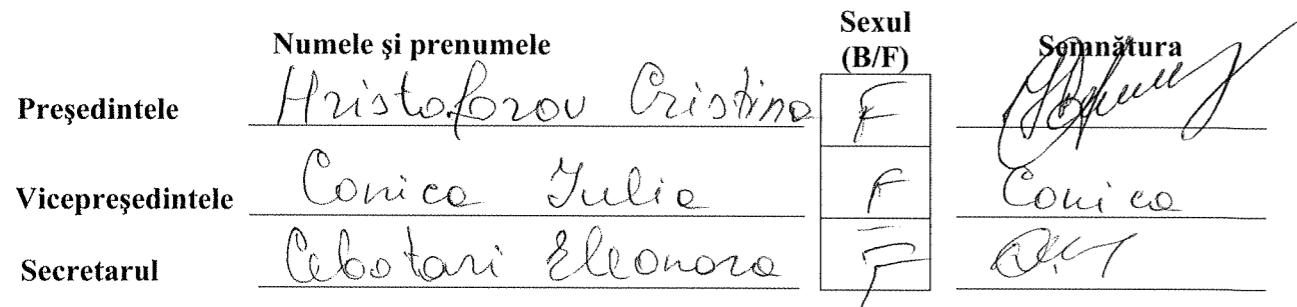 Numele şi prenumele Sexul (B/F) Semnătura
Preşedintele Hristoforov Cristina F
Vicepreşedintele Conica Iulia F Conica
Secretarul Cebotari Eleonora F